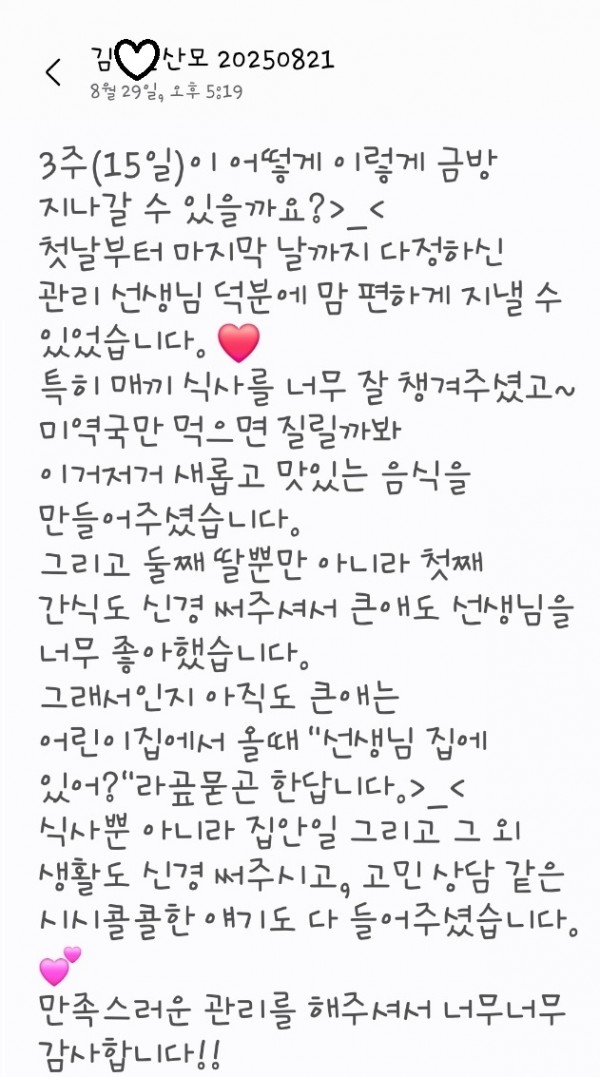 김 산모 20250821
8월 29일, 오후 5:19
3주(15일)이 어떻게 이렇게 금방
지나갈 수 있을까요?>_<
첫날부터 마지막 날까지 다정하신
관리 선생님 덕분에 맘 편하게 지낼 수
있었습니다. ❤️
특히 매끼 식사를 너무 잘 챙겨주셨고~
미역국만 먹으면 질릴까봐
이거저거 새롭고 맛있는 음식을
만들어주셨습니다.
그리고 둘째 딸뿐만 아니라 첫째
간식도 신경 써주셔서 큰애도 선생님을
너무 좋아했습니다.
그래서인지 아직도 큰애는
어린이집에서 올때 "선생님 집에
있어?"라곺묻곤 한답니다.>_<
식사뿐 아니라 집안일 그리고 그 외
생활도 신경 써주시고, 고민 상담 같은
시시콜콜한 얘기도 다 들어주셨습니다.
💕
만족스러운 관리를 해주셔서 너무너무
감사합니다!!